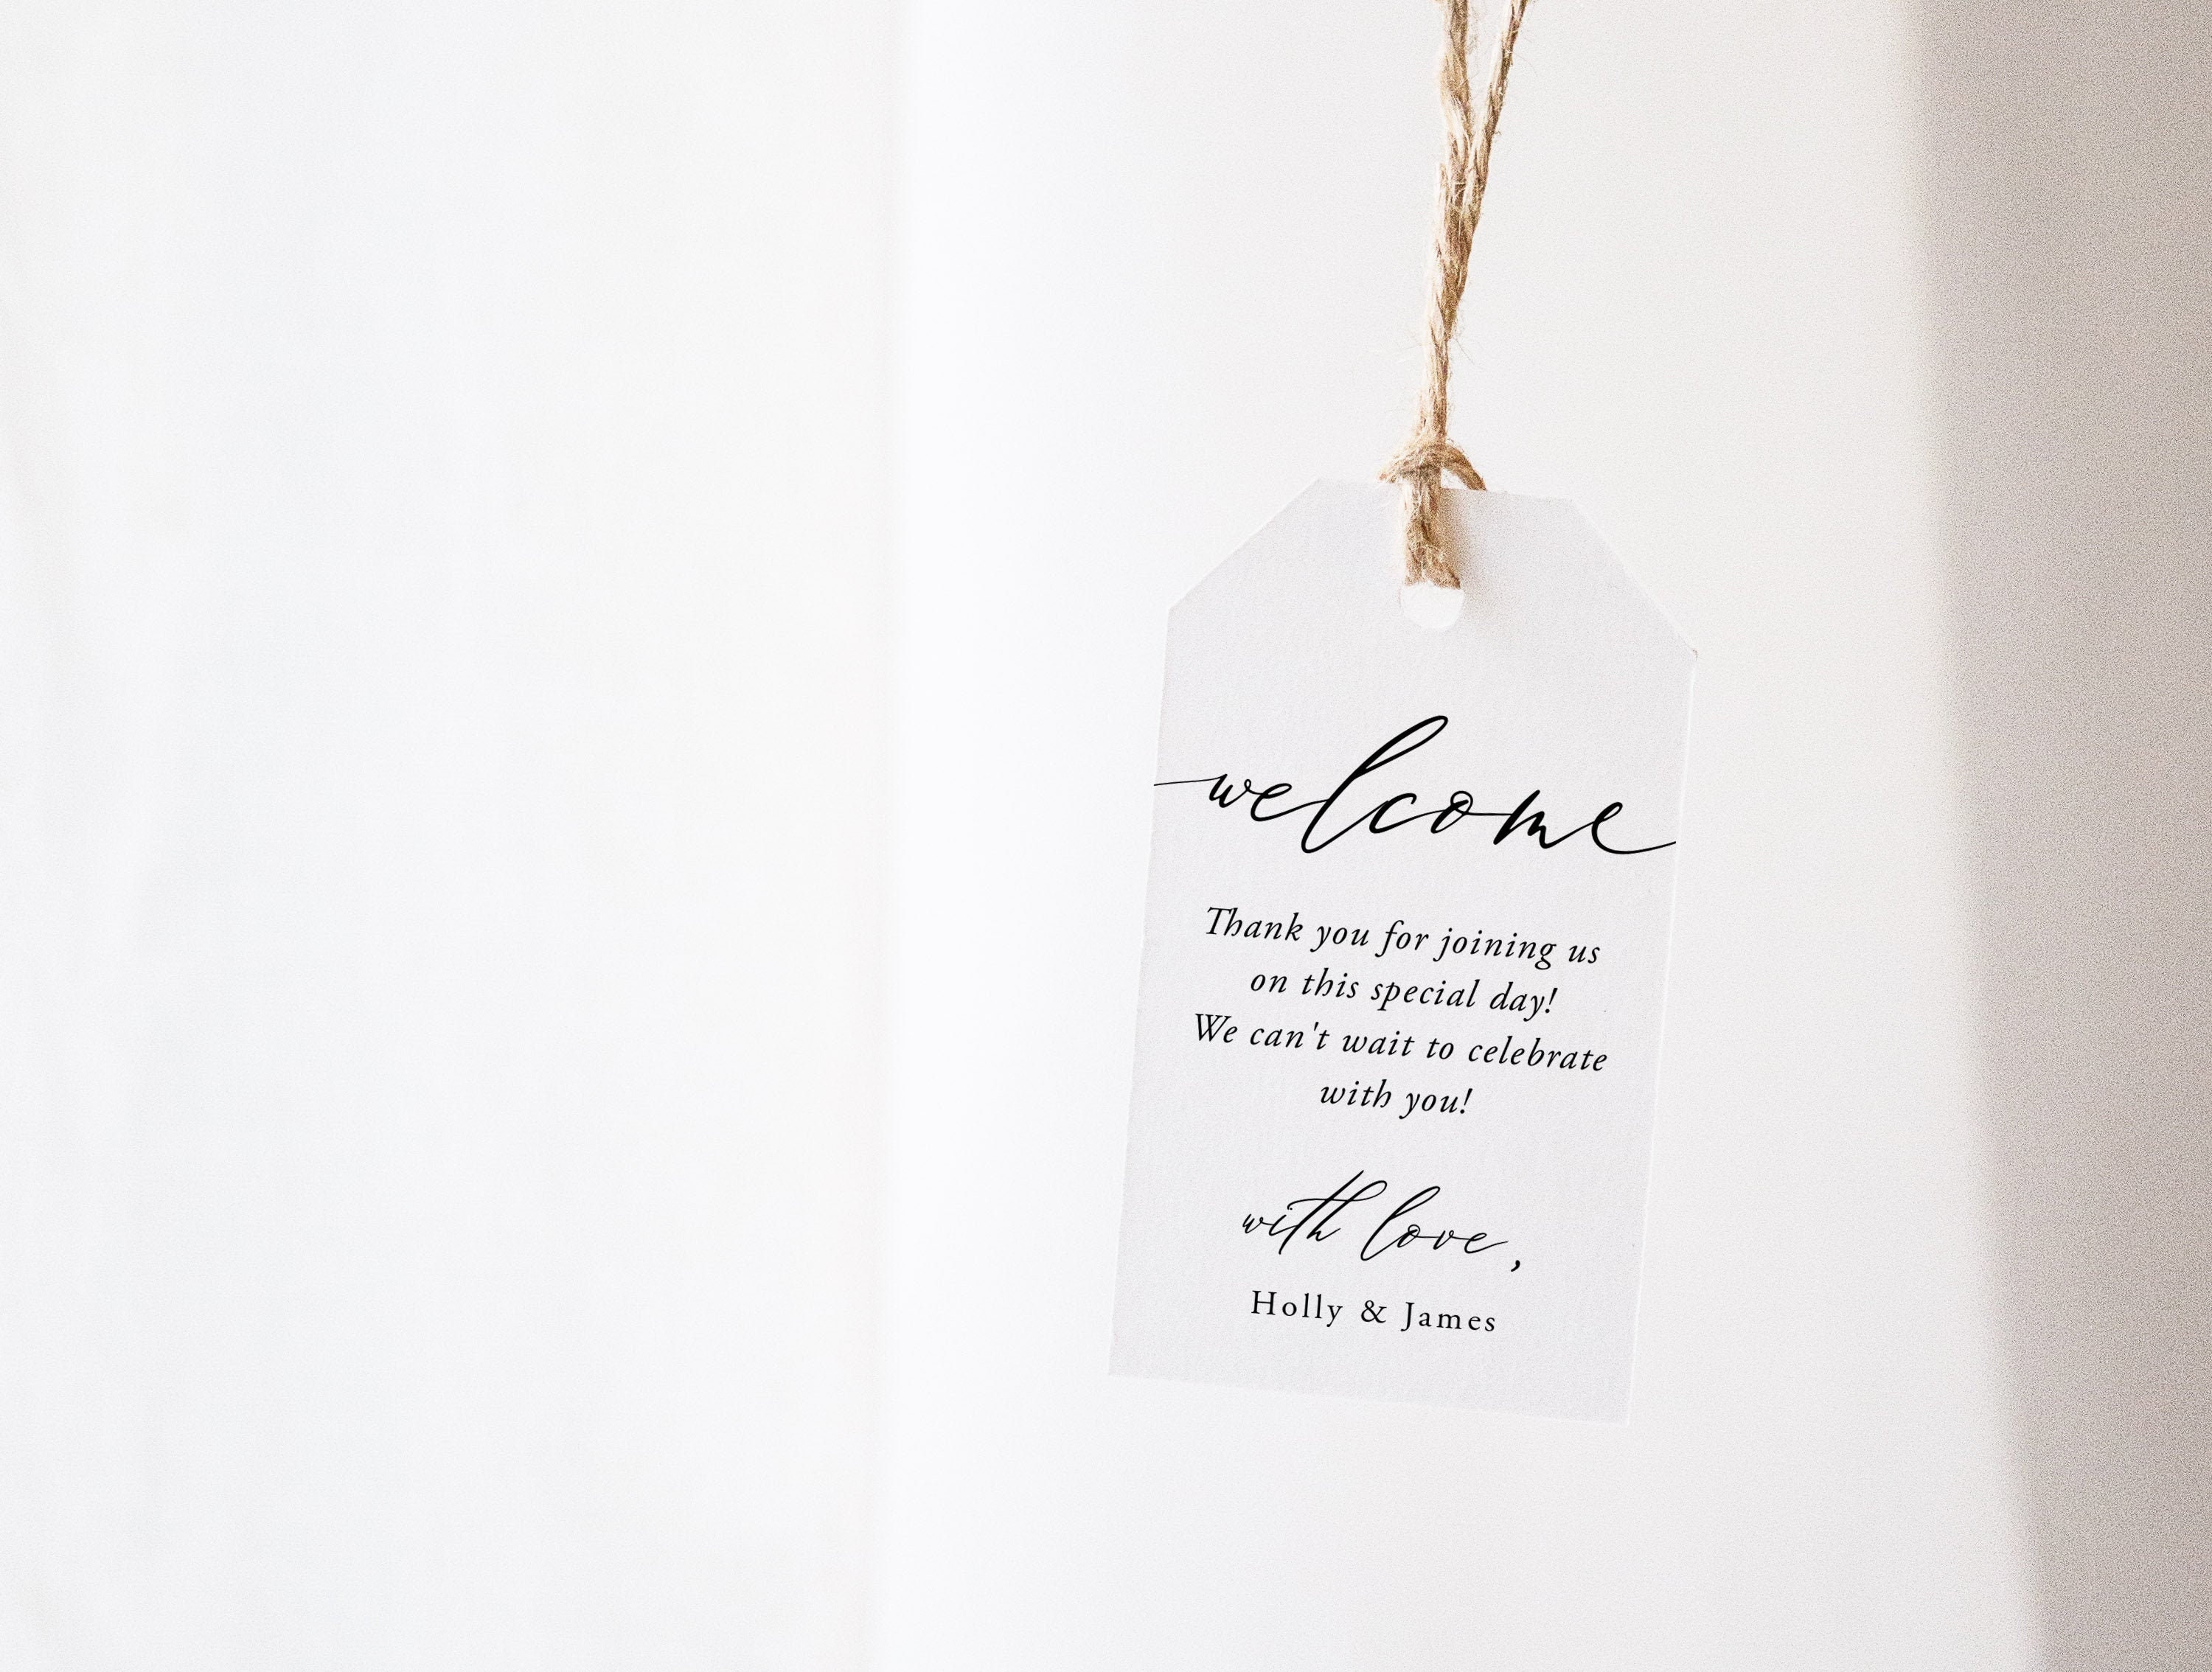 welcome
Thank you for joining us
on this special day!
We can't wait to celebrate
with you!
with love,
Holly & James